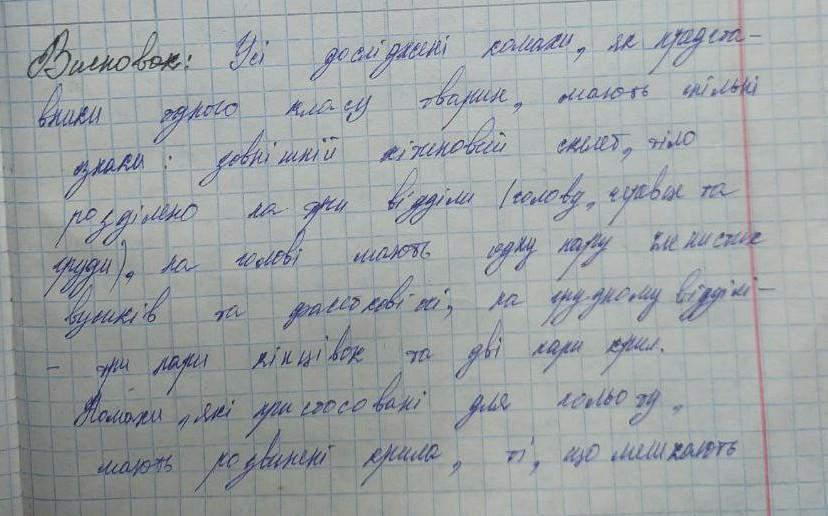 Висновок: Усі досліджені комахи, як предста-
вники одного класу тварин, мають спільні
знаки: зовнішній хітиновий скелет, тіло
розділено на три відділи (голову, черевце та
груди), на голові мають одну пару членистих
вусиків та фасеткові очі, на грудному відділі -
- три пари кінцівок та дві пари крил.
Комахи, які пристосовані для польоту,
мають розвинені крила, ті, що мешкають